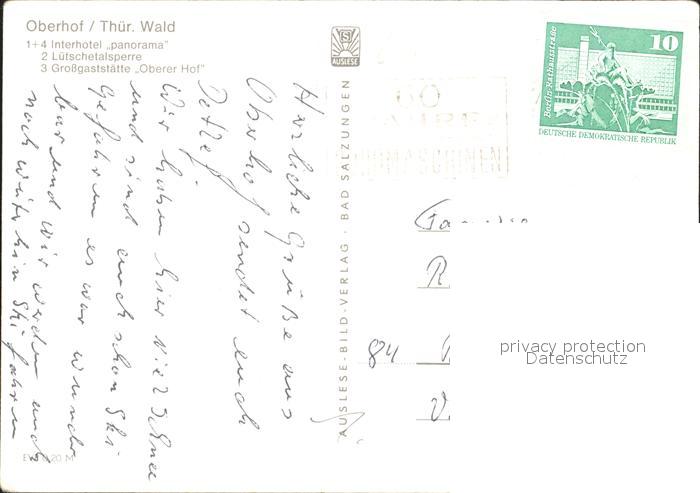 Oberhof / Thür. Wald
1+4 Interhotel „panorama“
2 Lütschetalsperre
3 Großgaststätte „Oberer Hof“
S
AUSLESE
10
Berlin-Rathausstraße
DEUTSCHE DEMOKRATISCHE REPUBLIK
60
Herzliche Grüße aus
Oberhof sendet euch
Detlef.
Wir haben hier viel Schnee
und sind auch schon Ski
gefahren es war wunder
bar und wir werden auch
noch weiterhin Ski fahren
AUSLESE-BILD-VERLAG · BAD SALZUNGEN
Fa
R
84
V
privacy protection
Datenschutz